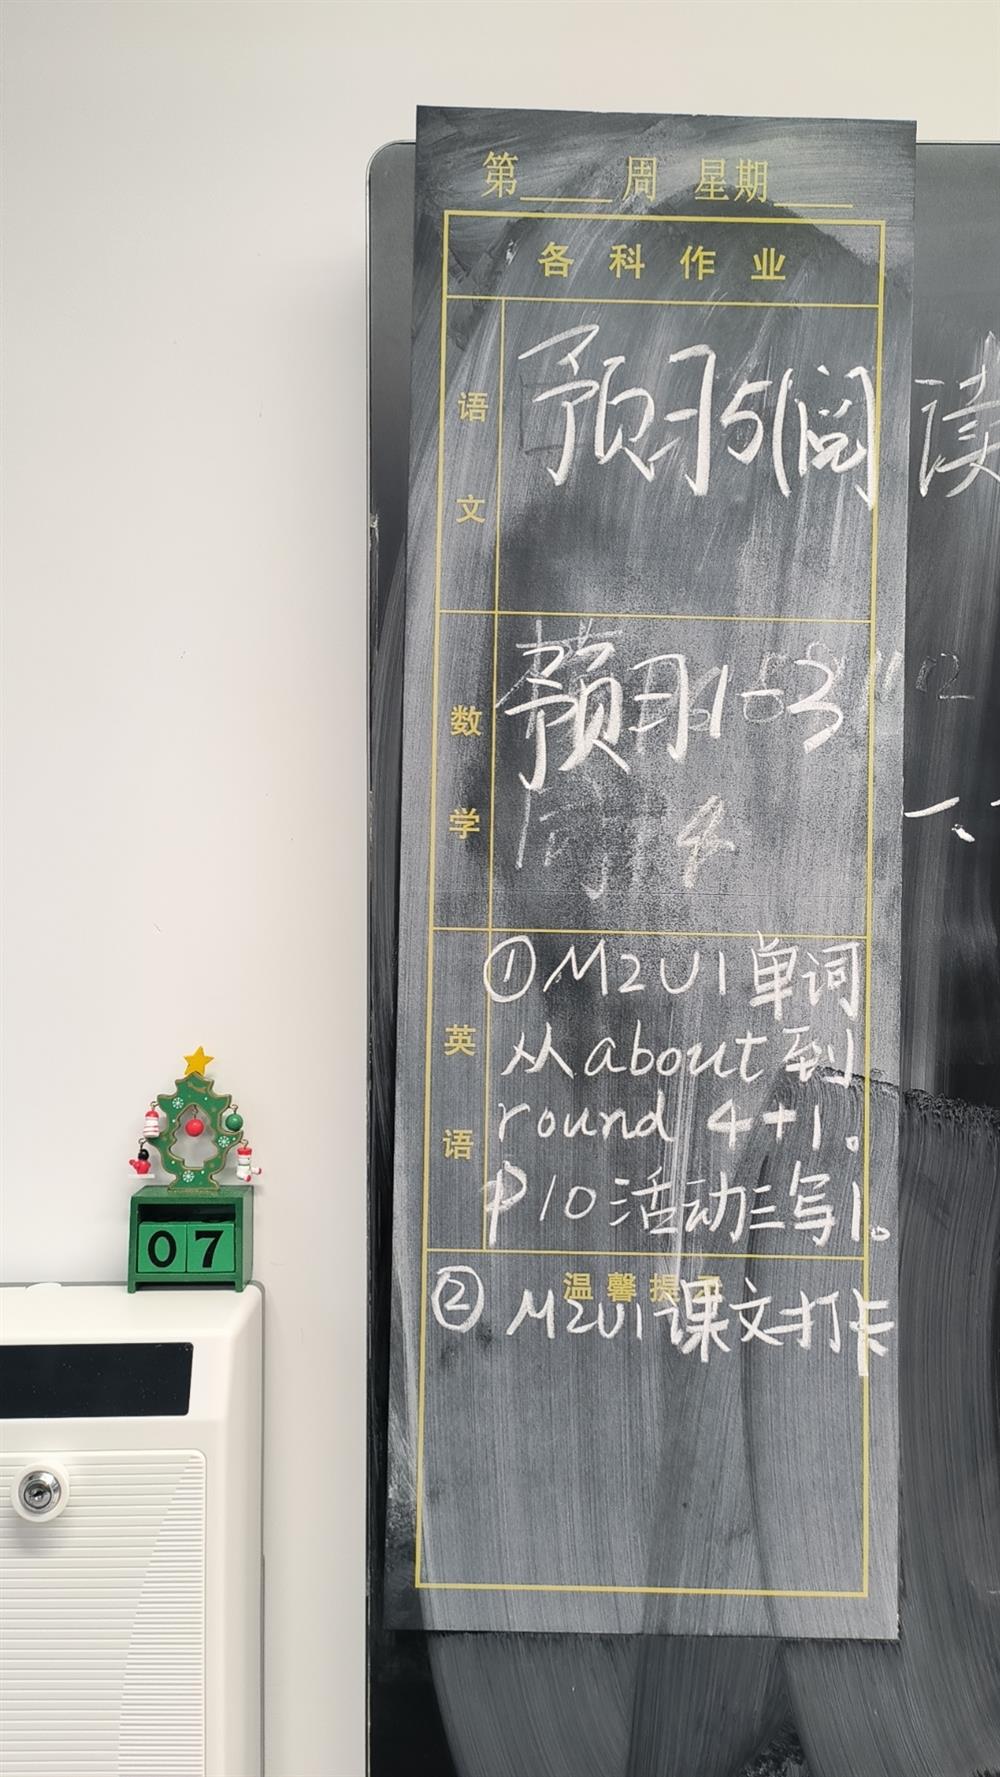 第____周 星期____
各科作业
语文
预习5(阅读
数学
预习1-3
英语
①M2U1单词
从about到
round 4+1。
P10活动三写1。
温馨提示
②M2U1课文打卡
07